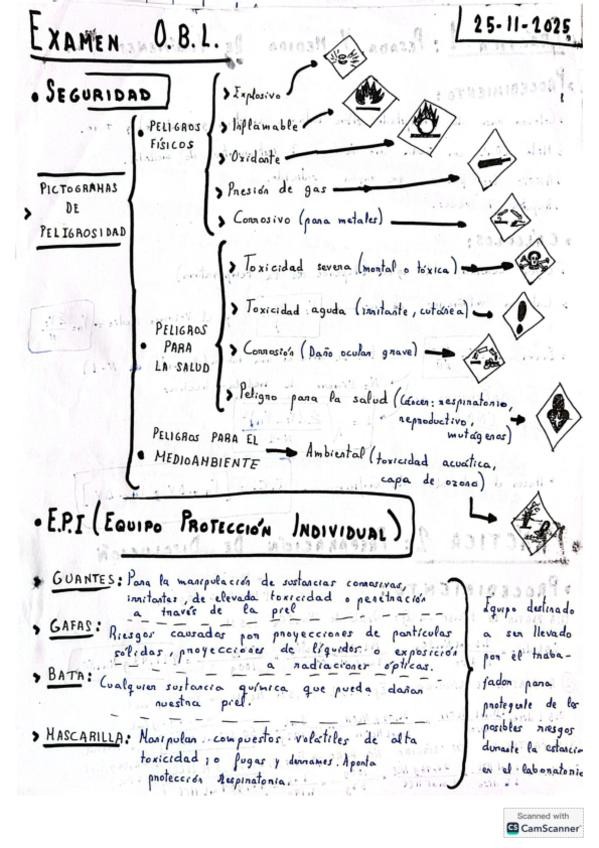 EXAMEN O.B.L.
25-11-2025
• SEGURIDAD
PICTOGRAMAS
DE
PELIGROSIDAD
• PELIGROS
FÍSICOS
Explosivo
Inflamable
Oxidante
Presión de gas
Corrosivo (para metales)
• PELIGROS
PARA
LA SALUD
Toxicidad severa (mortal o tóxica)
Toxicidad aguda (irritante, cutánea)
Corrosión (Daño ocular grave)
Peligro para la salud (Cáncer: respiratorio,
reproductivo,
mutágenos)
• PELIGROS PARA EL
MEDIOAMBIENTE
Ambiental (toxicidad acuática,
capa de ozono)
• E.P.I (EQUIPO PROTECCIÓN INDIVIDUAL)
GUANTES: Para la manipulación de sustancias corrosivas,
irritantes, de elevada toxicidad o penetración
a través de la piel
GAFAS: Riesgos causados por proyecciones de partículas
solidas, proyecciones de líquidos o exposición
a radiaciones ópticas.
BATA: Cualquier sustancia química que pueda dañar
nuestra piel.
MASCARILLA: Manipular compuestos volátiles de alta
toxicidad, o fugas y derrames. Aporta
protección Respiratoria.
Equipo destinado
a ser llevado
por el traba-
jador para
protegerle de los
posibles riesgos
durante la estancia
en el laboratorio
Scanned with
CS CamScanner